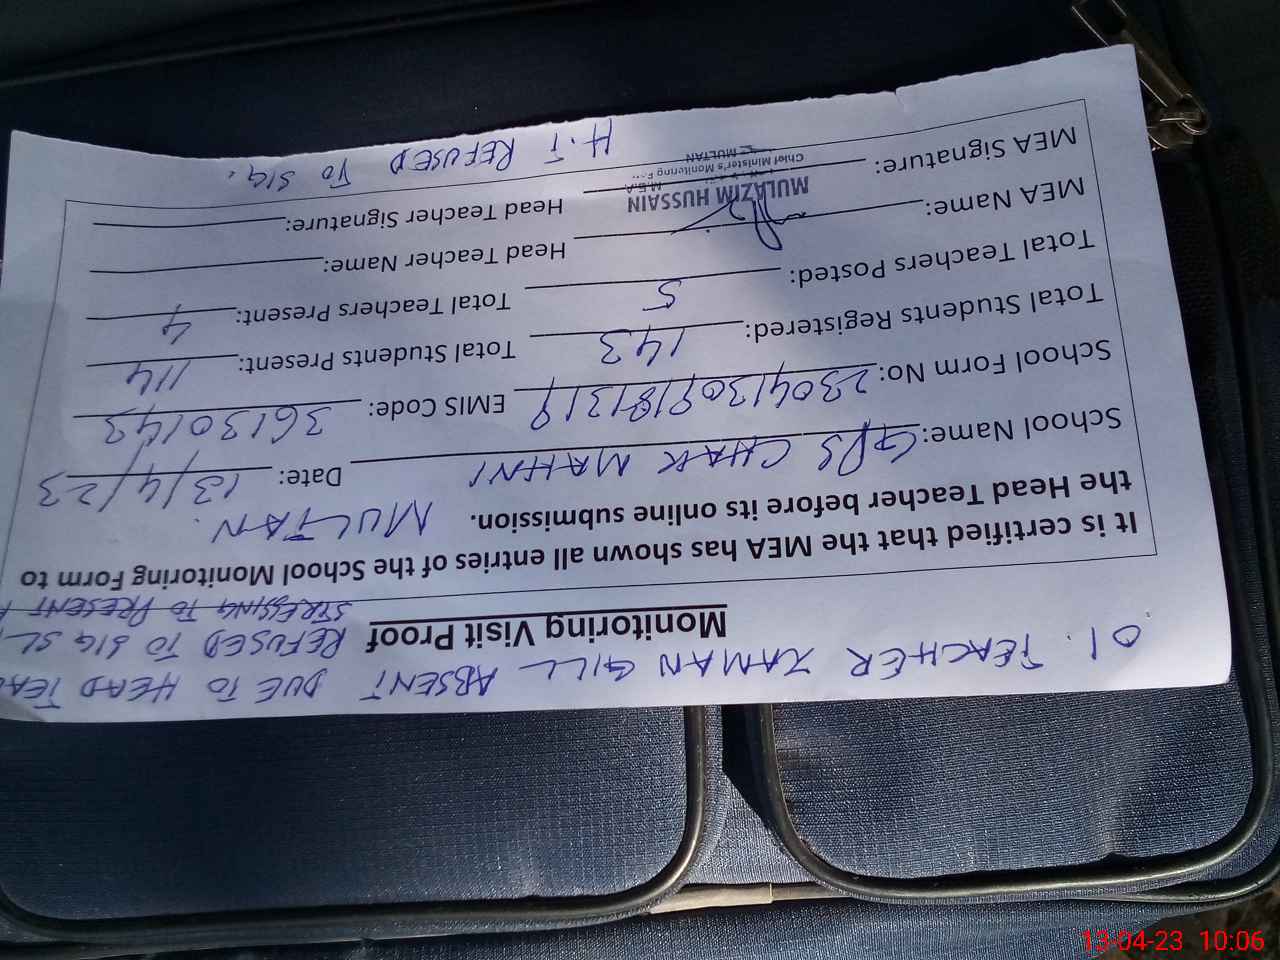 01. TEACHER ZAMAN GILL ABSENT DUE TO HEAD
Monitoring Visit Proof REFUSED TO SIG
STRESSING TO PRESENT
It is certified that the MEA has shown all entries of the School Monitoring Form to
the Head Teacher before its online submission. MULTAN.
School Name: GPS CHAK MAHNI Date: 13/4/23
School Form No: EMIS Code: 36130143
Total Students Registered: 143 Total Students Present: 114
Total Teachers Posted: 5 Total Teachers Present: 4
MEA Name: Head Teacher Name:
MEA Signature: Head Teacher Signature:
MULAZIM HUSSAIN
M.E.A
Chief Minister's Monitoring
MULTAN
H.T REFUSED TO SIG.
13-04-23 10:06